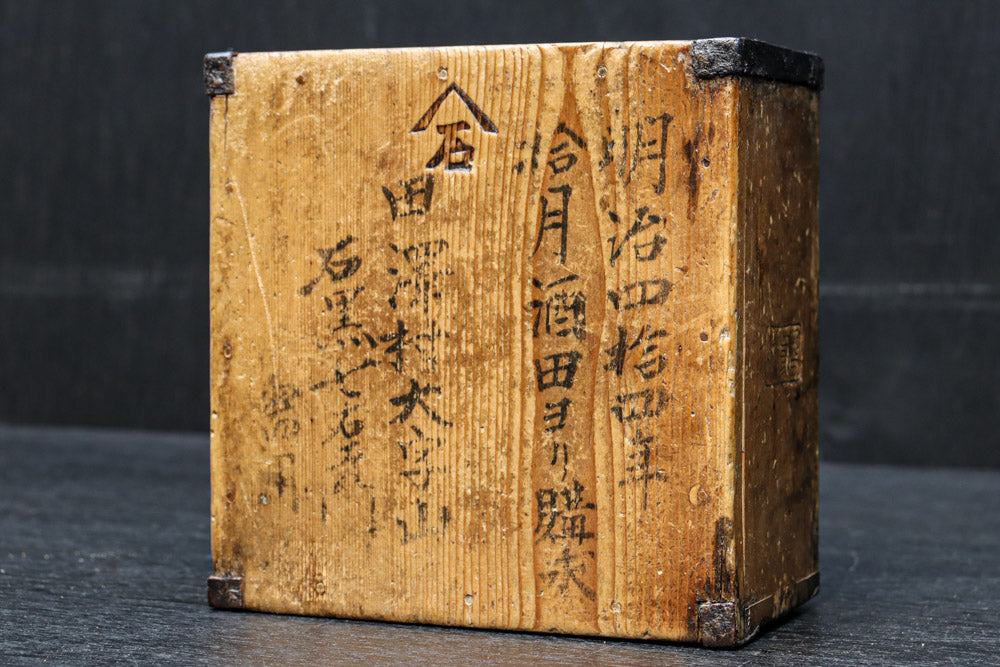 明治四拾四年
拾月酒田ヨリ購求
石
田澤村大字山
石黒七右衛門